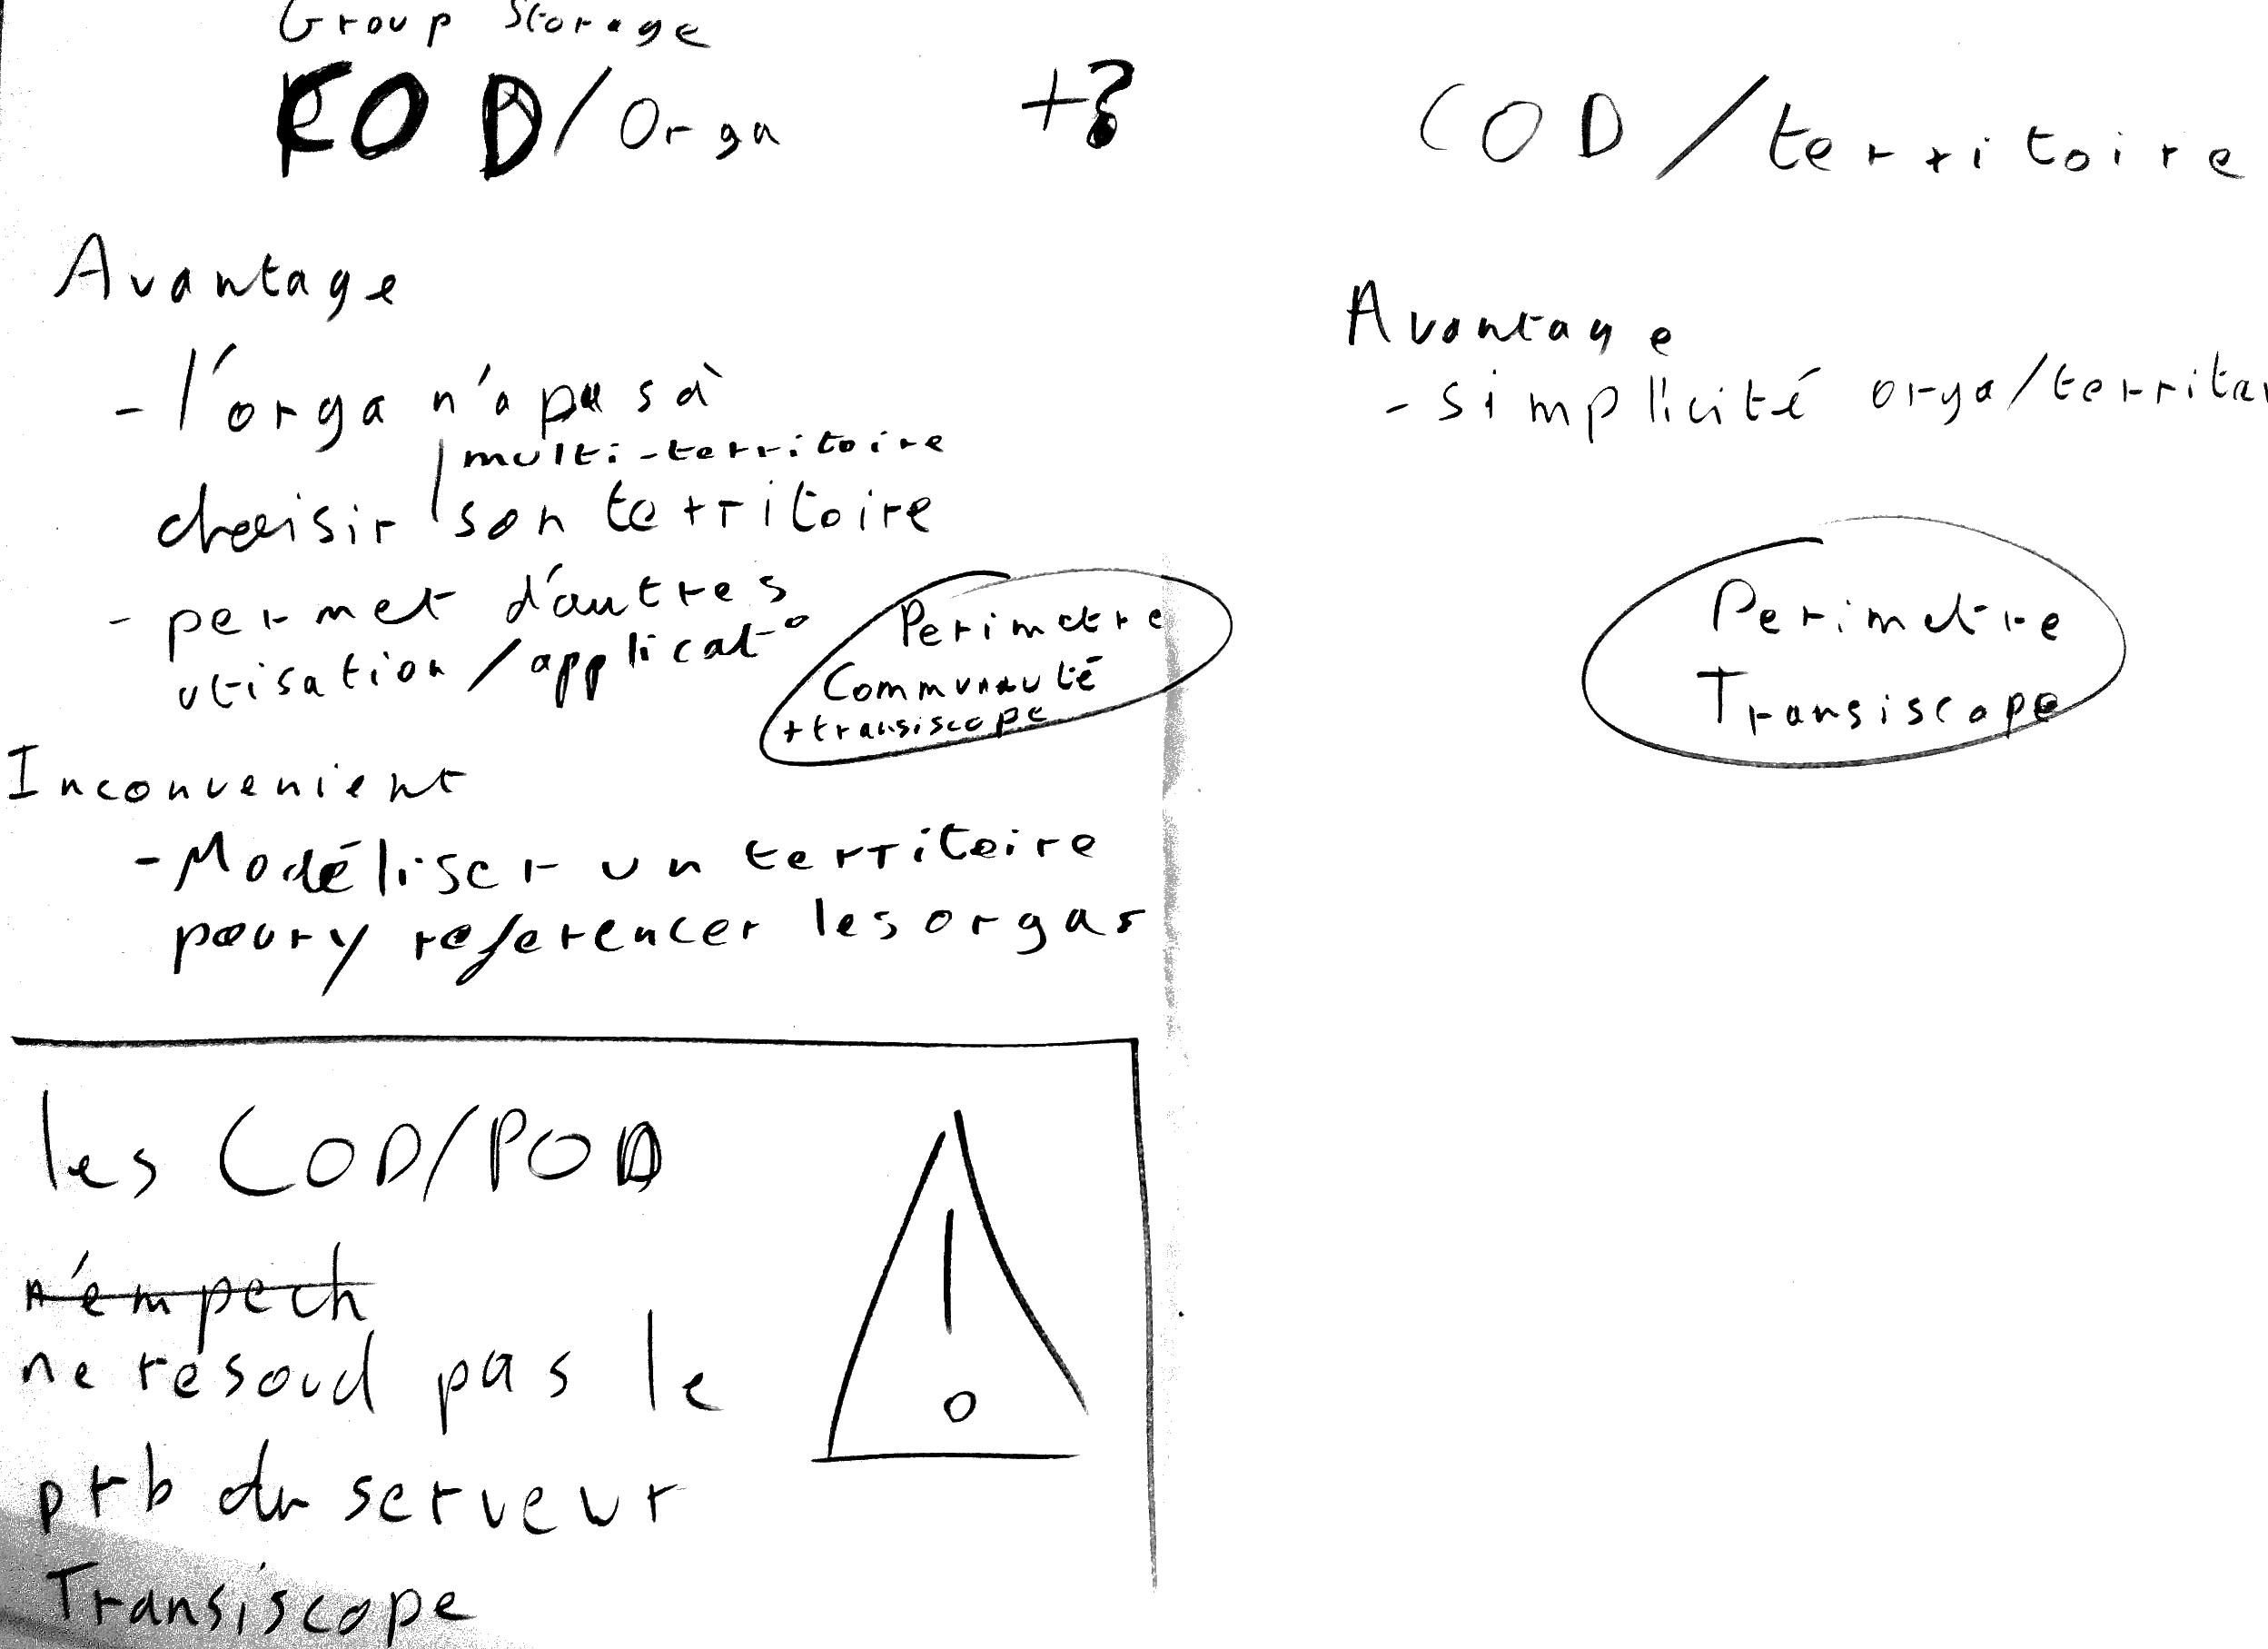 Group Storage
COD/Orga
+?
Avantage
- l'orga n'a pas à
multi-territoire
choisir son territoire
- permet d'autres
utisation/applicat°
Perimetre
Communauté
+ transiscope
Inconvenient
- Modéliser un territoire
pour y referencer les orgas
les COD/POD
n'empech
ne résoud pas le
prb du serveur
Transiscope
!
COD/territoire
Avantage
- simplicité orga/territoi
Perimetre
Transiscope